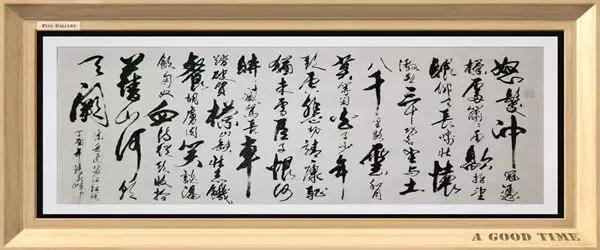 PINE GALLERY
怒髮冲冠憑
欄處瀟瀟雨歇抬望
眼仰天長嘯壯懷
激烈三十功名塵與土
八千里路雲和月
莫等閑白了少年
頭空悲切靖康恥
猶未雪臣子恨何
時滅駕長車
踏破賀蘭山缺壯志饑
餐胡虜肉笑談渴
飲匈奴血待從頭收拾
舊山河朝
天闕
岳飛滿江紅詞
丁酉年
A GOOD TIME